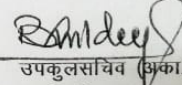 उपकुलसचिव (अका